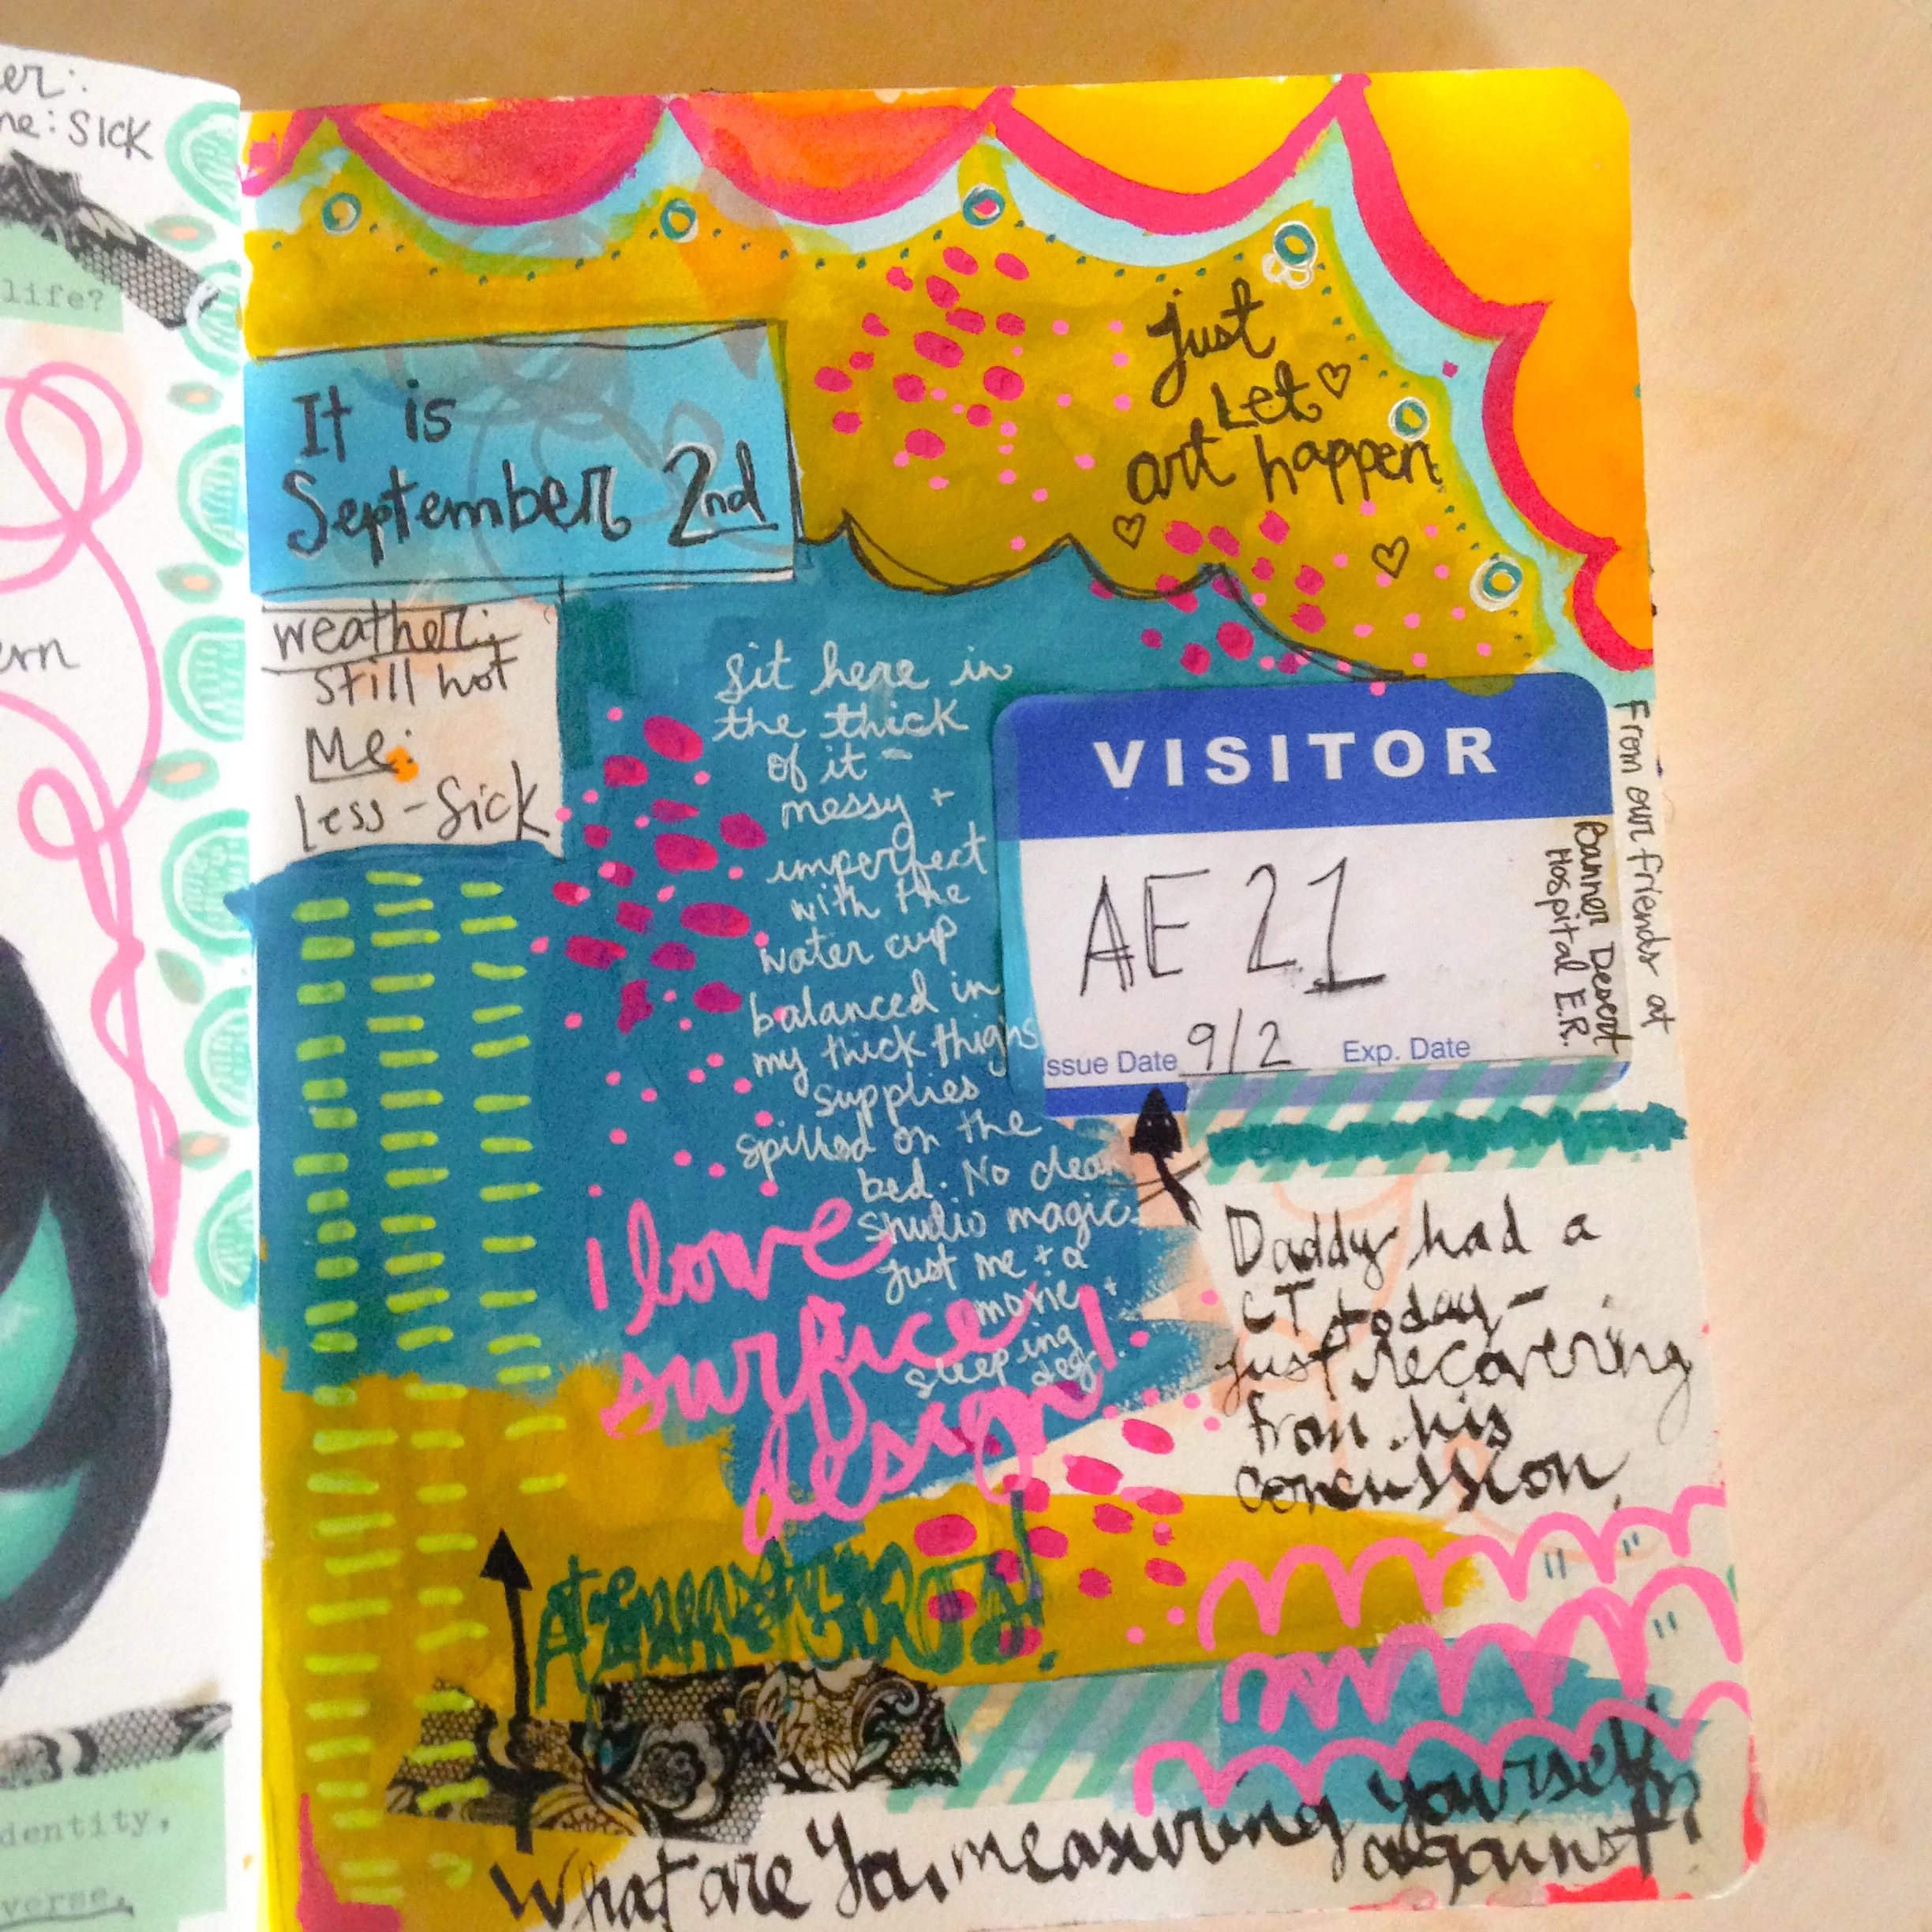 er:
me: SICK
life?
ern
dentity,
verse.
It is
September 2nd
weather:
still hot
Me:
Less-Sick
just
Let
art happen
Sit here in
the thick
of it -
messy +
imperfect
with the
water cup
balanced in
my thick thighs
supplies
spilled on the
bed. No clean
studio magic
just me + a
movie +
sleeping
i love
surface
design!
VISITOR
AE 21
Issue Date 9/2 Exp. Date
From our friends at
Banner Desert
Hospital E.R.
Daddy had a
CT today-
just recovering
from his
concussion.
What are You measuring yourself
against?